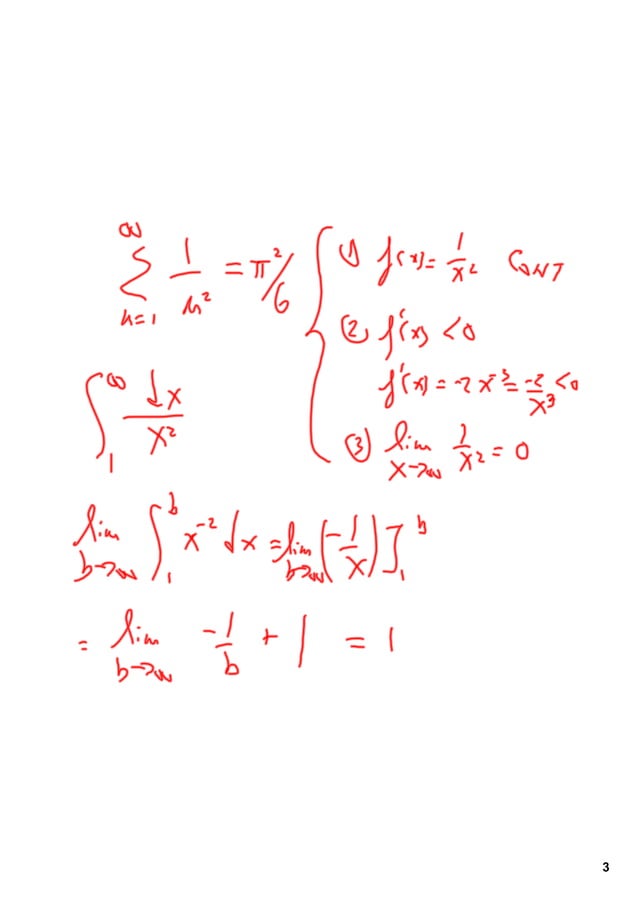 ∞
∑ 1/n² = π²/6
n=1
(1) f(x) = 1/x² CONT
(2) f'(x) < 0
f'(x) = -2x⁻³ = -2/x³ < 0
(3) lim x→∞ 1/x² = 0
∫₁^∞ dx/x²
lim b→∞ ∫₁^b x⁻² dx = lim b→∞ (-1/x)]₁^b
= lim b→∞ -1/b + 1 = 1
3